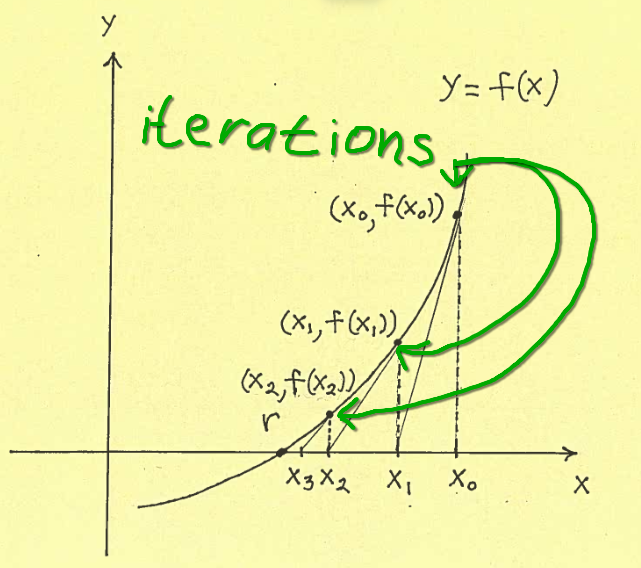 y
y = f(x)
iterations
(x₀, f(x₀))
(x₁, f(x₁))
(x₂, f(x₂))
r
x₃ x₂ x₁ x₀
x